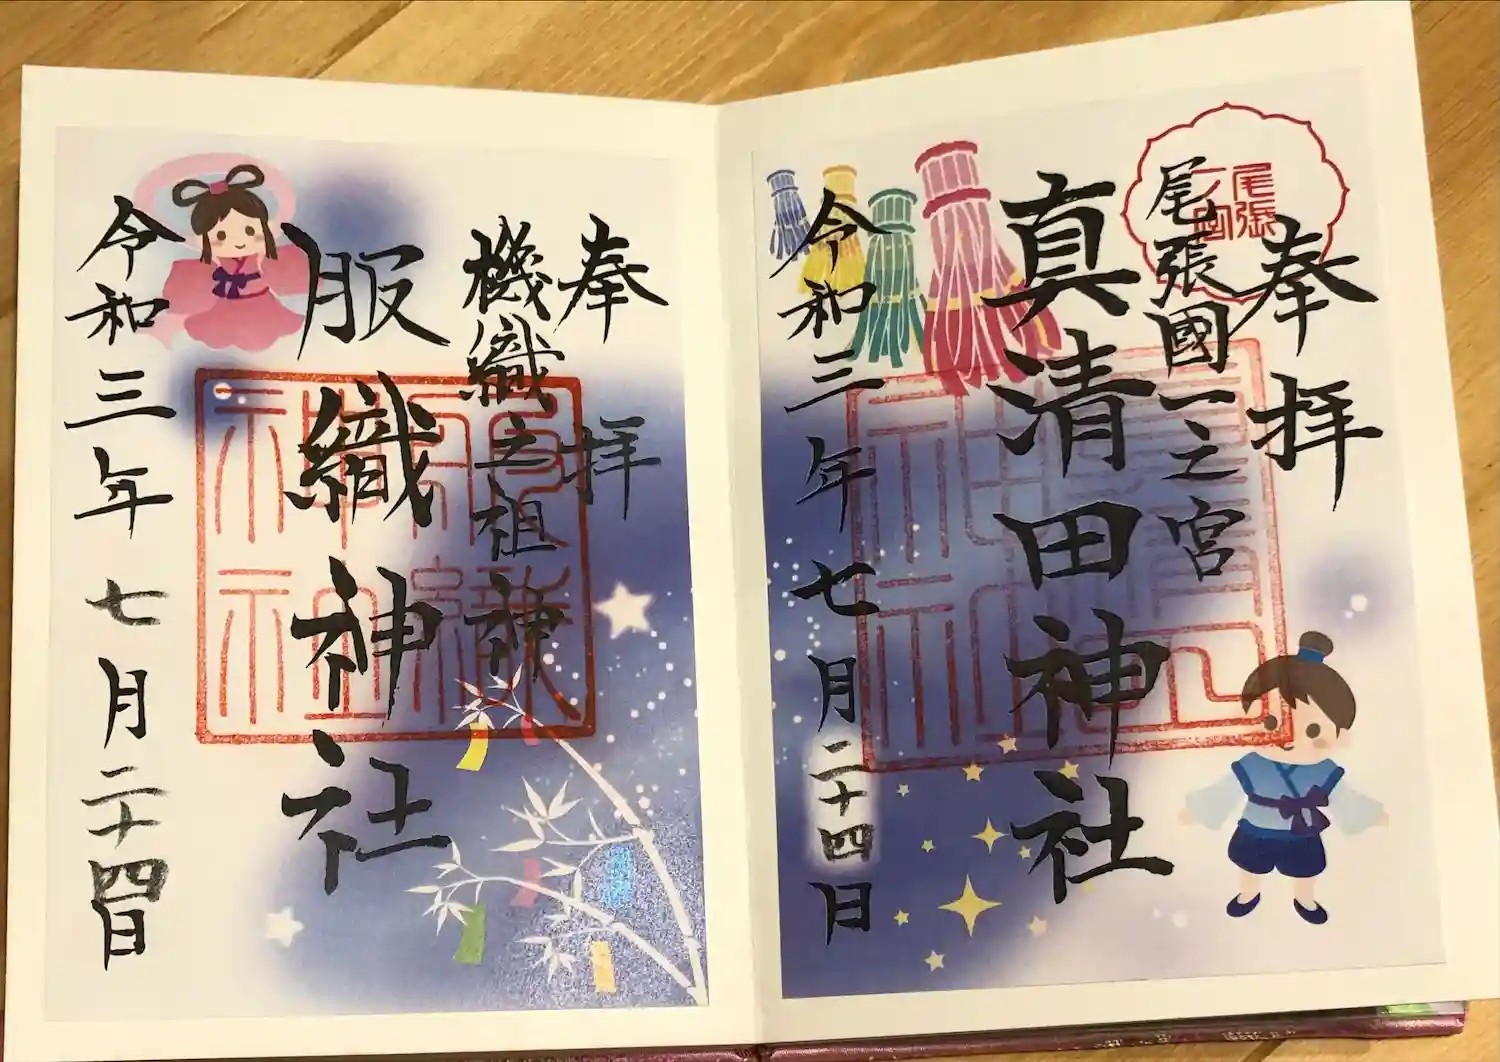 奉拝
尾張國一之宮
真清田神社
令和三年七月二十四日
尾張
一宮
奉拝
機織之祖神
服織神社
令和三年七月二十四日